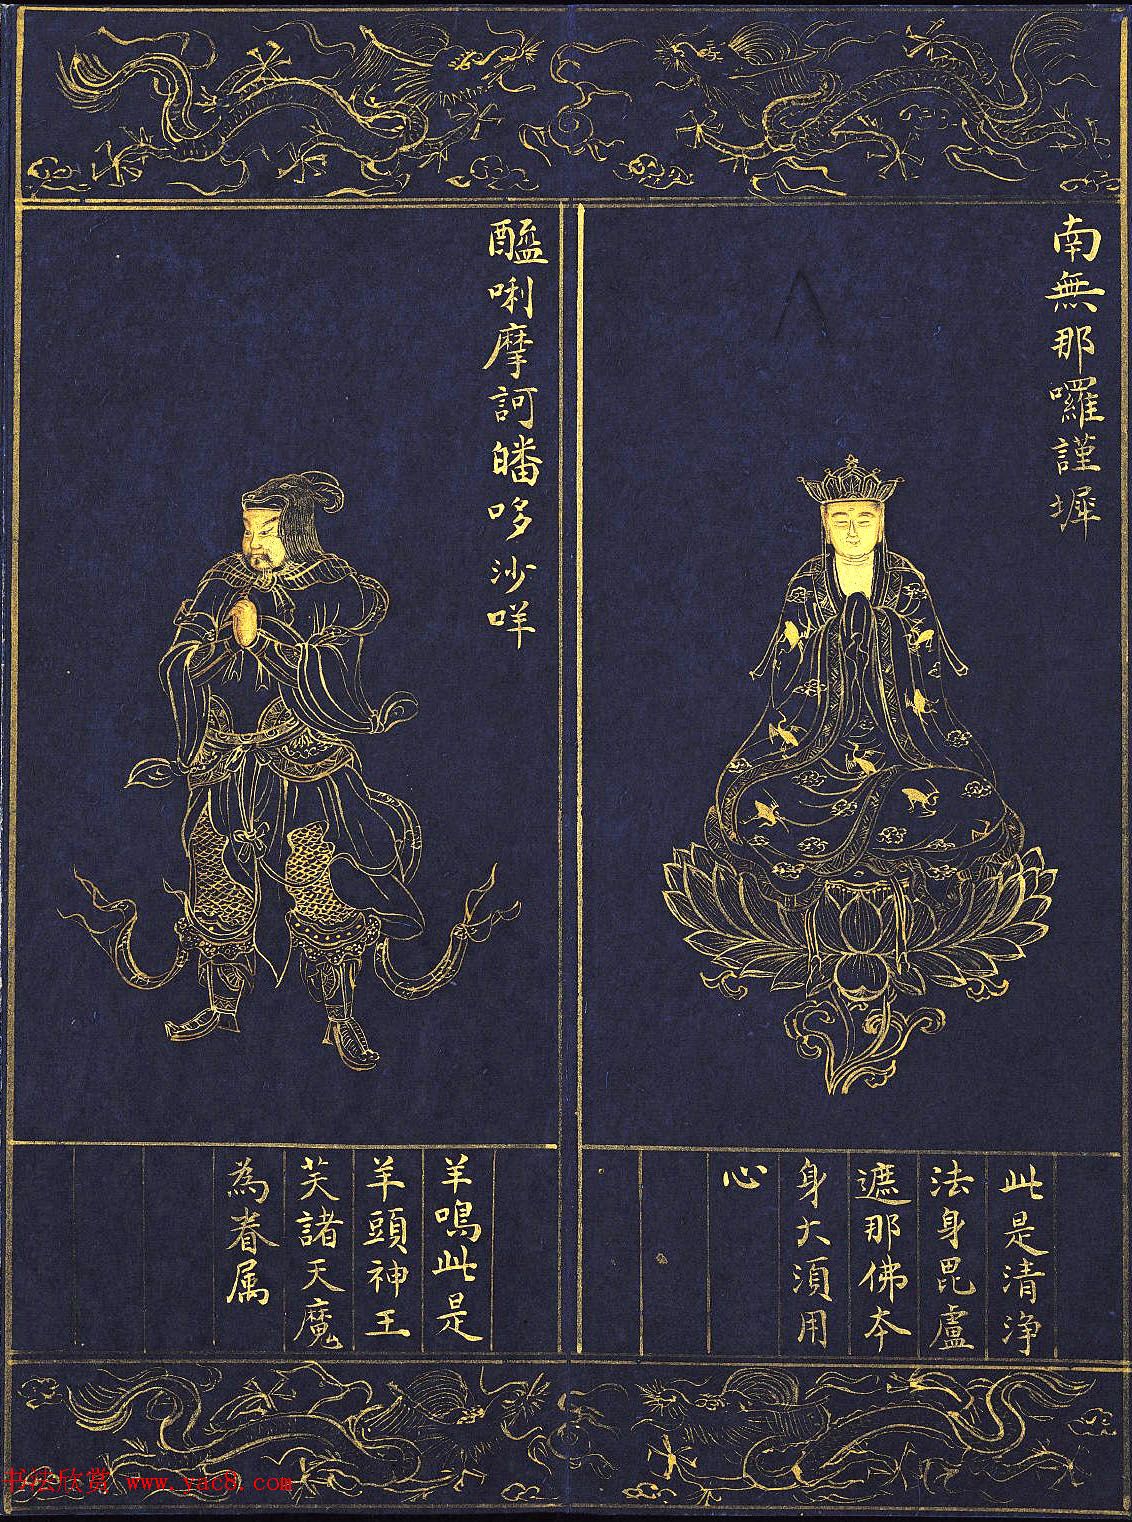 南無那囉謹墀
此是清淨
法身毘盧
遮那佛本
身大須用
心
醯唎摩訶皤哆沙咩
羊鳴此是
羊頭神王
芙諸天魔
為眷属
书法欣赏 www.yac8.com